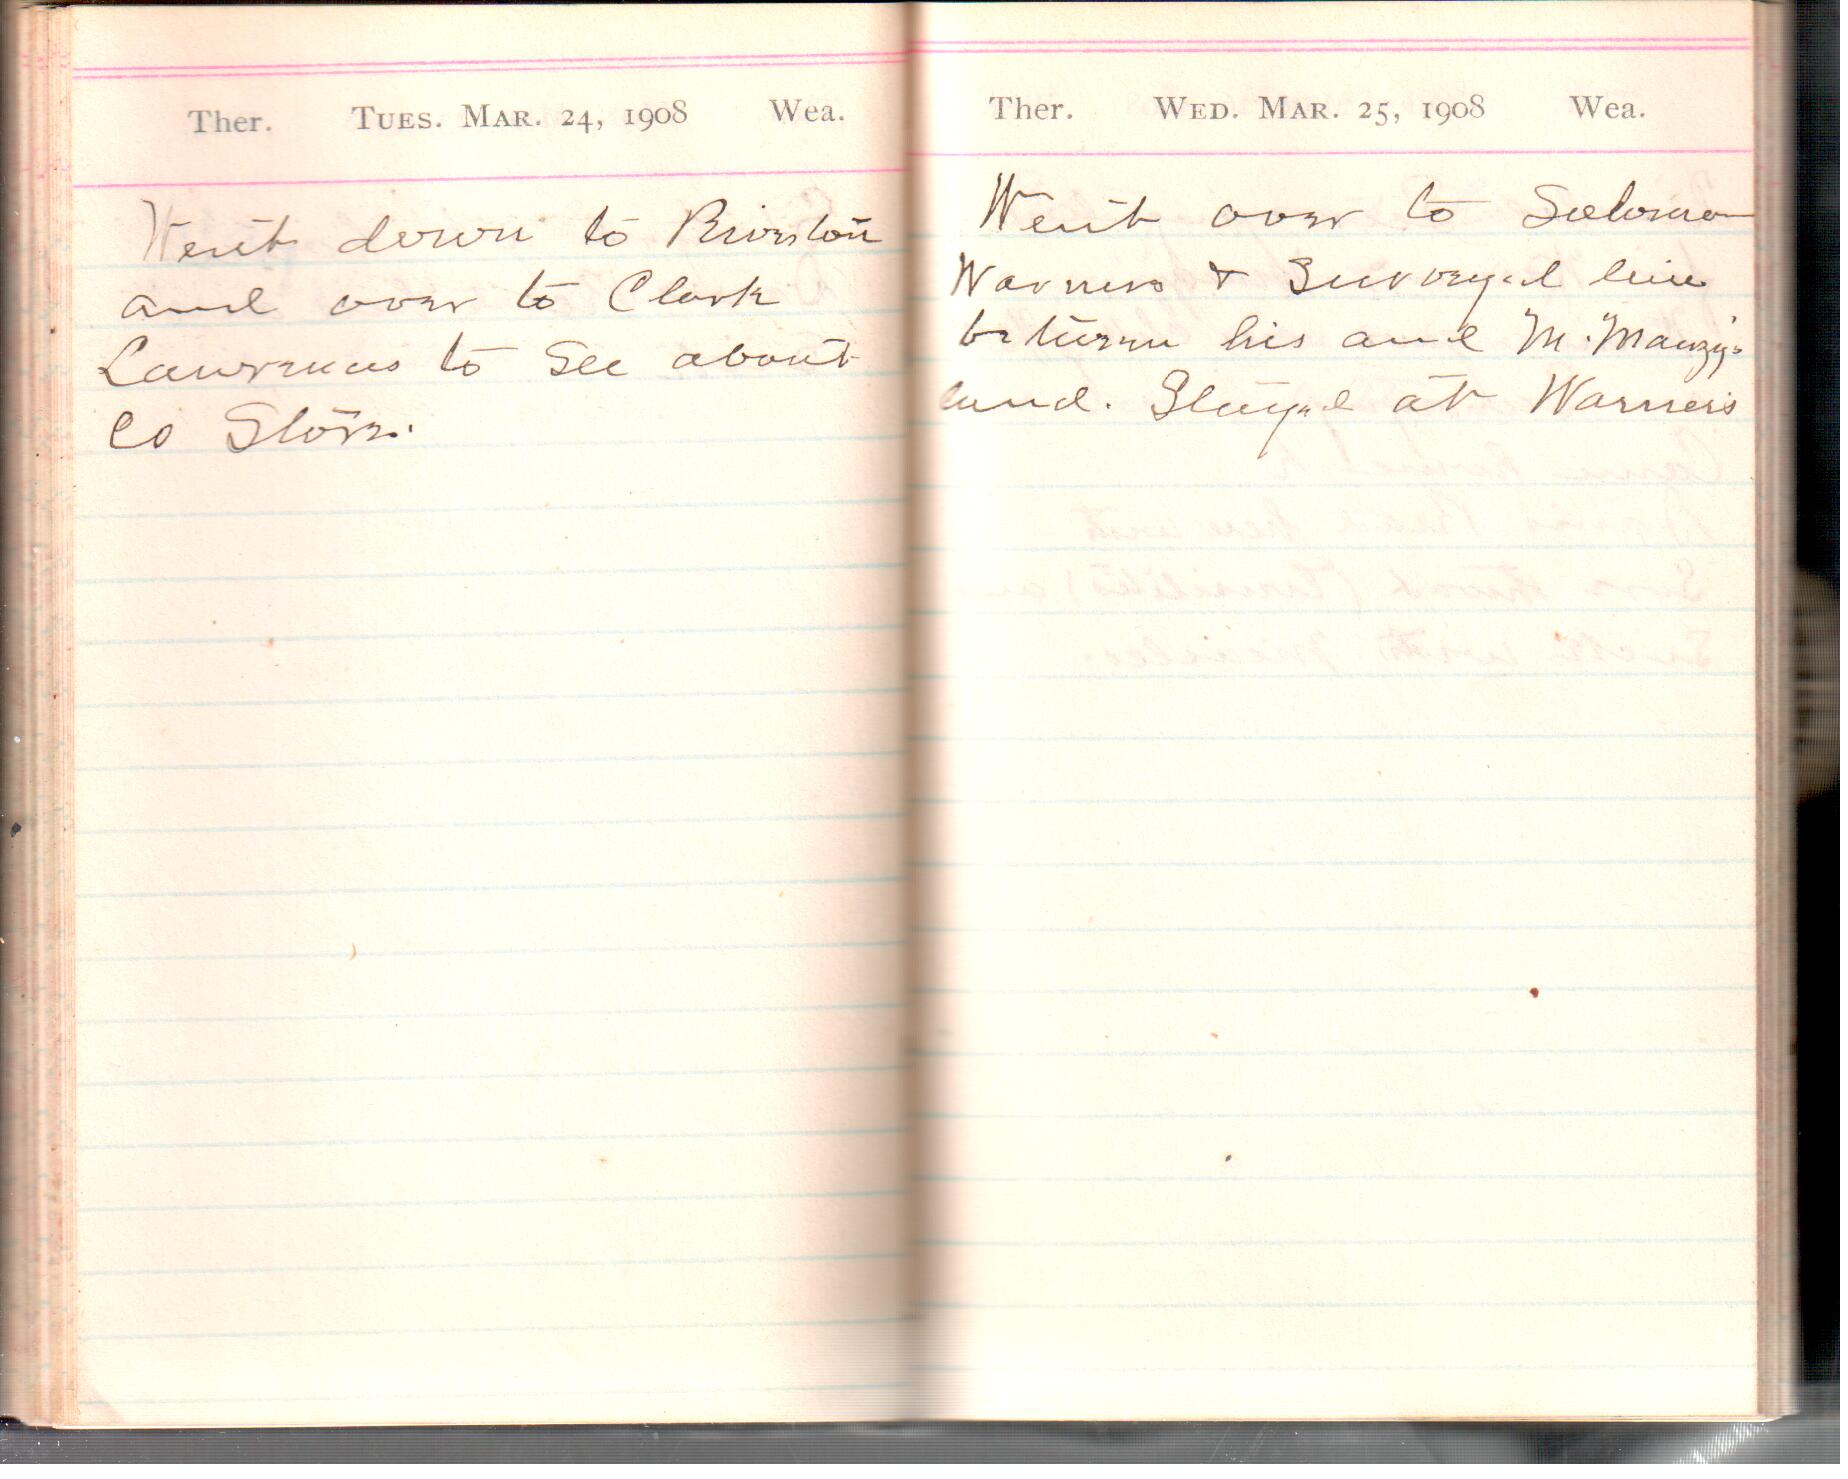 Ther. TUES. MAR. 24, 1908 Wea.
Went down to Riverton
and over to Clark
Lawrences to See about
Co Store.
Ther. WED. MAR. 25, 1908 Wea.
Went over to Solomon
Warners & Surveyed line
between his and M. Mauzy's
land. Stayed at Warners